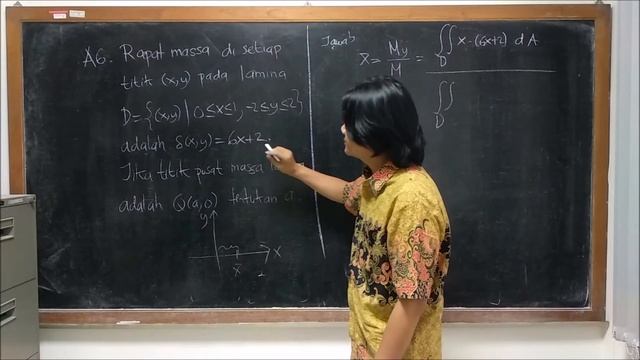 A6. Rapat massa di setiap
titik (x,y) pada lamina
D = {(x,y) | 0≤x≤1, -2≤y≤2}
adalah δ(x,y) = 6x+2.
Jika titik pusat massa
adalah Q(a,0) tentukan a.
y
x
x̄
Jawab
x̄ = My/M = ∬ x·(6x+2) dA
D
∬
D